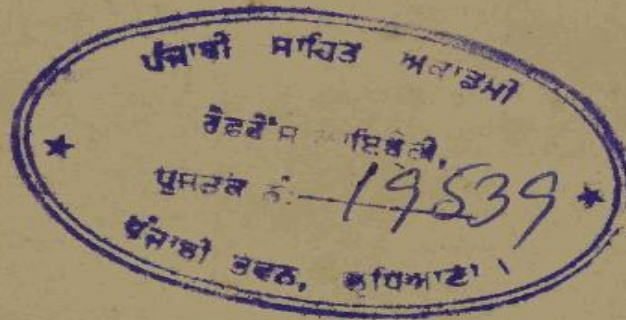 ਪੰਜਾਬੀ ਸਾਹਿਤ ਅਕਾਡਮੀ
ਰੈਫਰੈਂਸ ਲਾਇਬ੍ਰੇਰੀ,
ਪੁਸਤਕ ਨੰ: 19539
ਪੰਜਾਬੀ ਭਵਨ, ਲੁਧਿਆਣਾ।